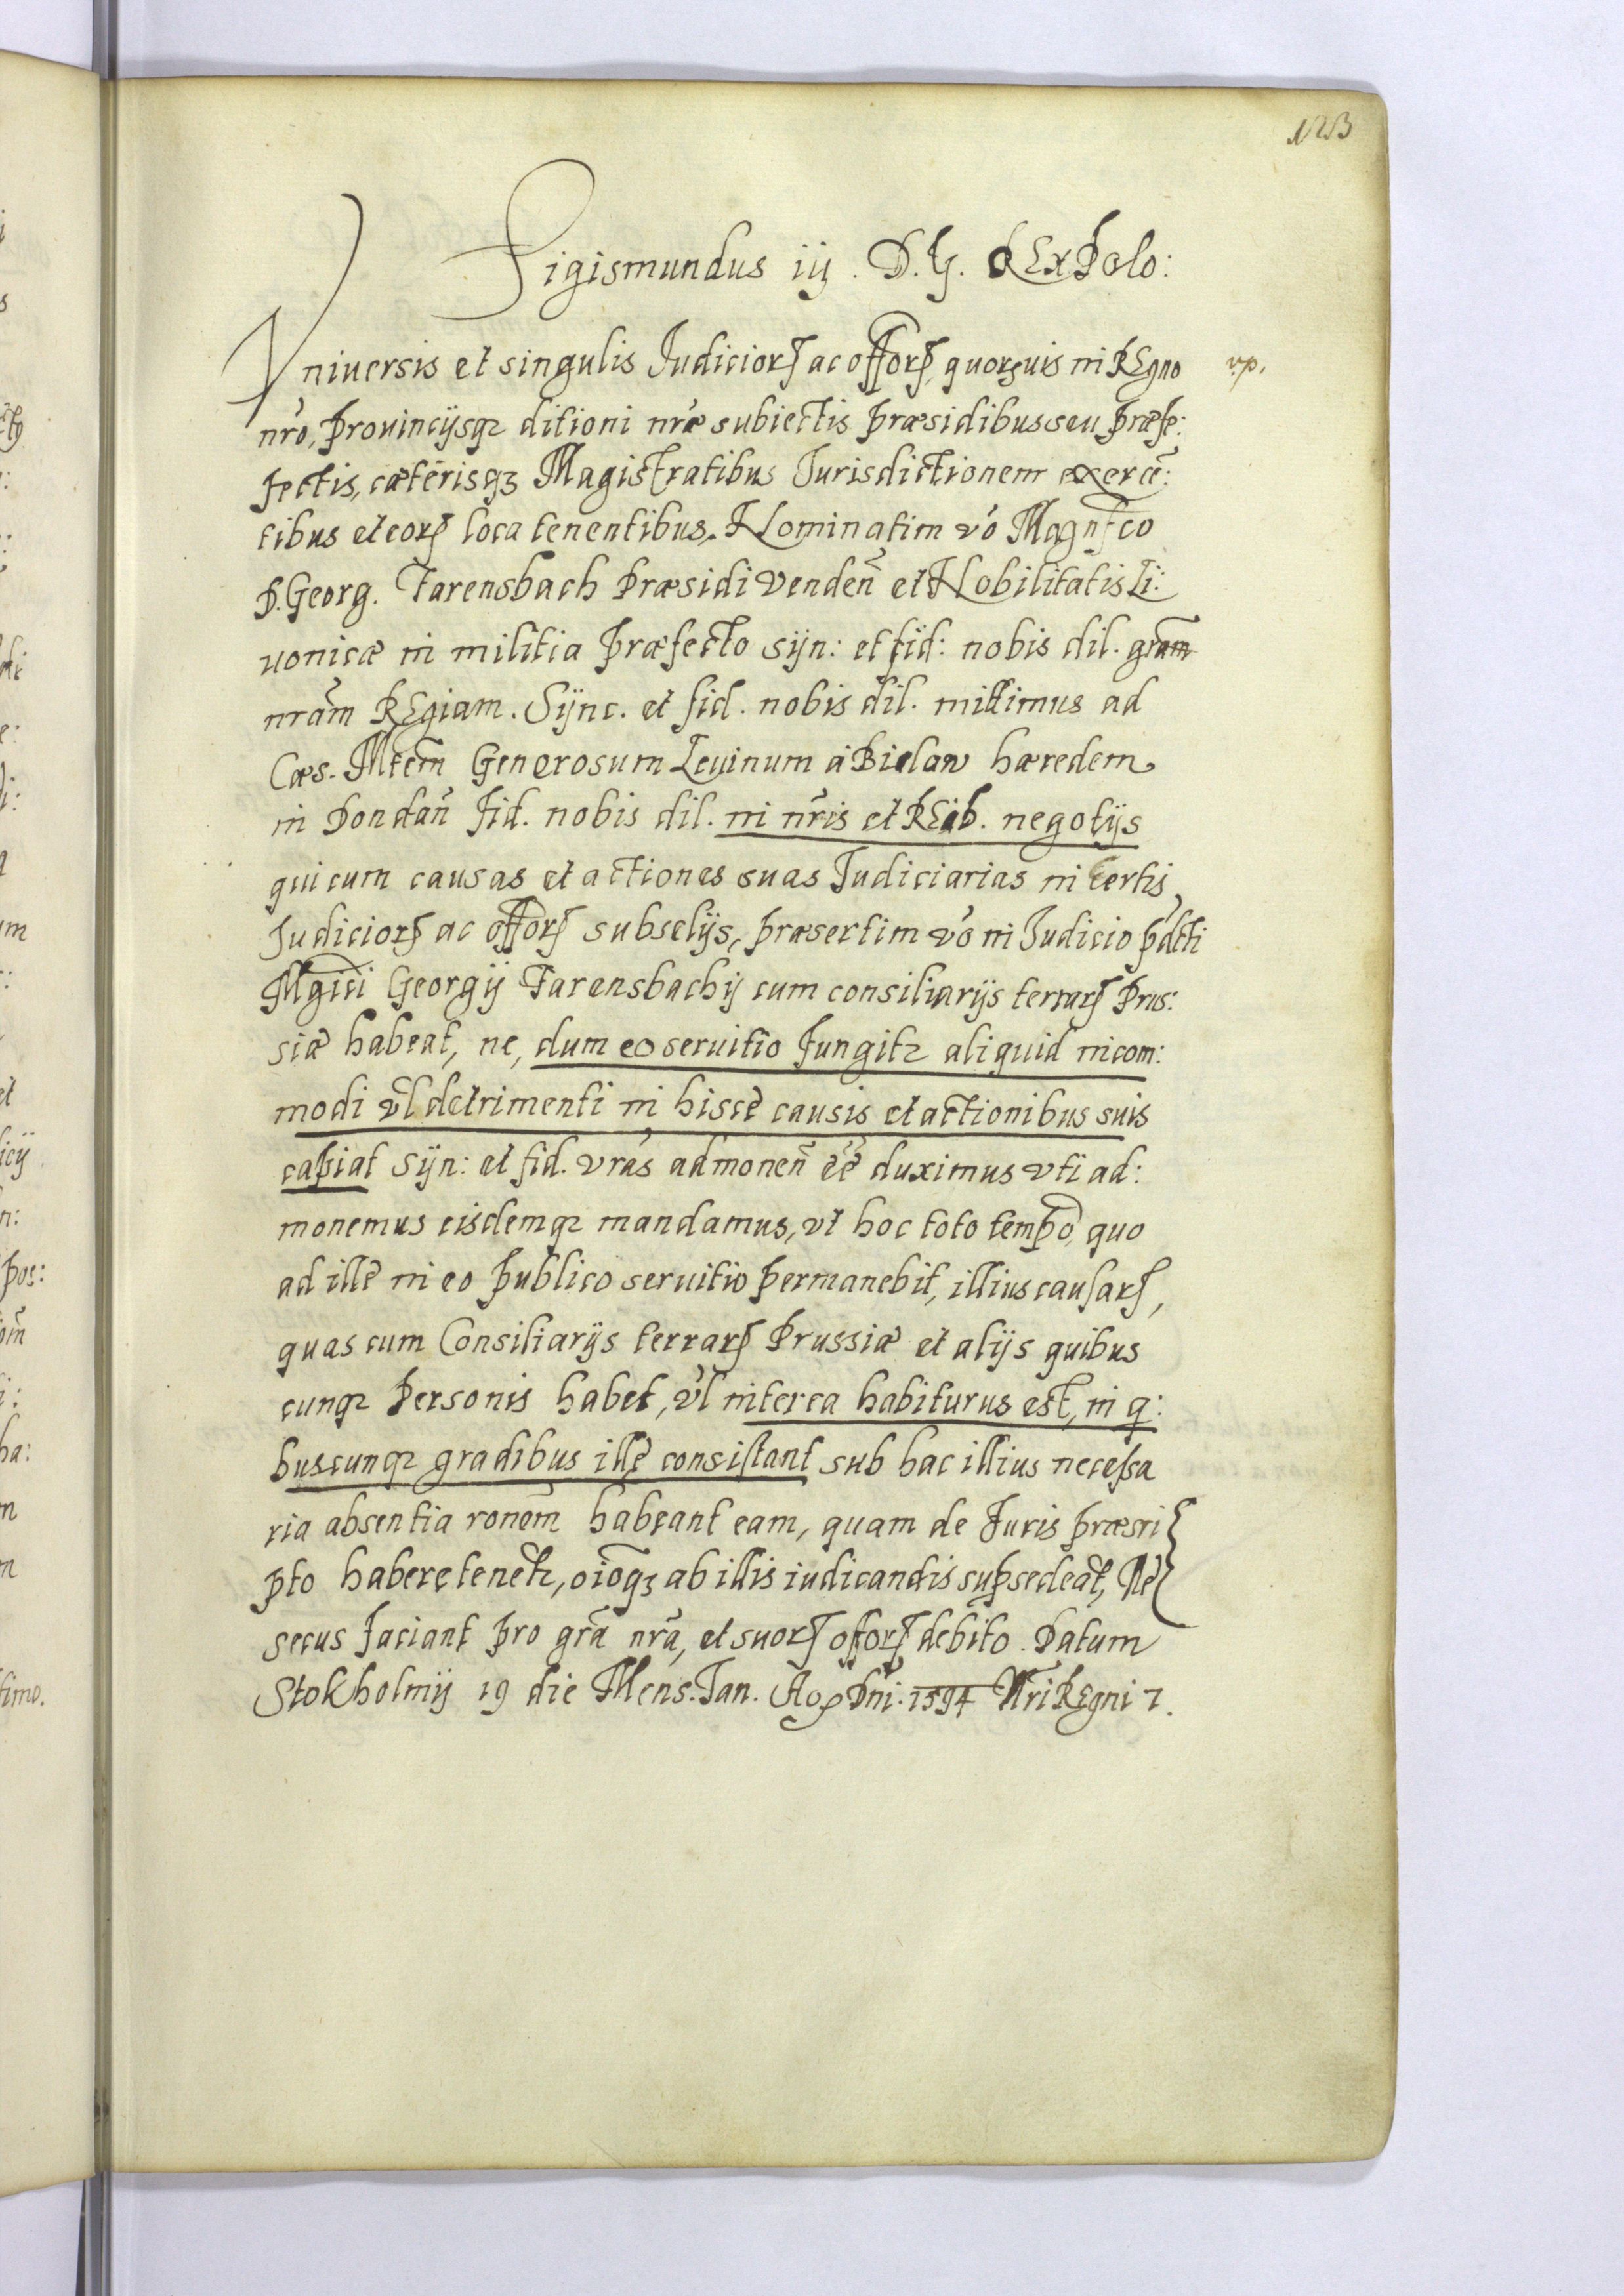 123
Sigismundus iij. D. G. REx Polo:
Vniuersis et singulis Judiciorꝝ ac offorꝝ, quorꝝuis in REgno
vp.
nr̄o, Prouincijsqꝫ ditioni nr̄æ subiectis Præsidibus seu Præfe:
fectis, cæterisqꝫ Magistratibus Jurisdictionem exercē:
tibus et eorꝝ loca tenentibus, Nominatim vō Magnfco
D. Georg. Farensbach Præsidi Vendeñ et Nobilitatis Li:
uonicæ in militia Præfecto syn: et fid: nobis dil. gram̄
nram̄ REgiam. Sync. et fid. nobis dil. mittimus ad
Cæs. Mtem̄ Generosum Leuinum á Bielaw hæredem
in Dondañ fid. nobis dil. in nr̄is et REib. negotijs
qui cum causas et actiones suas Judiciarias in certis
Judiciorꝝ ac offorꝝ subselijs, præsertim vō in Judicio p̄dcti
Mgici Georgij Farensbachij cum consiliarijs terrarꝝ Prus:
siæ habeat, ne, dum eo seruitio fungitꝛ aliquid incom:
modi vl̄ detrimenti in hiscē causis et actionibus suis
capiat Syn: et fid. vrās admoneñ eē̄ duximus vti ad:
monemus eisdemqꝫ mandamus, vt hoc toto tempo, quo
ad illē in eo publico seruitio permanebit, illius causarꝝ,
quas cum Consiliarijs terrarꝝ Prussiæ et alijs quibus
cunqꝫ Personis habet, vl̄ interea habiturus est, in q:
buscunqꝫ gradibus illē consistant sub hac illius necessa
ria absentia ronem̄ habeant eam, quam de Juris præscri
pto habere tenētꝛ, oiōqꝫ ab illis iudicandis suꝑsedeāt, Nē
secus faciant pro grā nrā, et suorꝝ offorꝝ debito. Datum
Stokholmij 19 die Mens. Jan. Ao Dn̄i. 1594 Nr̄i REgni 7.